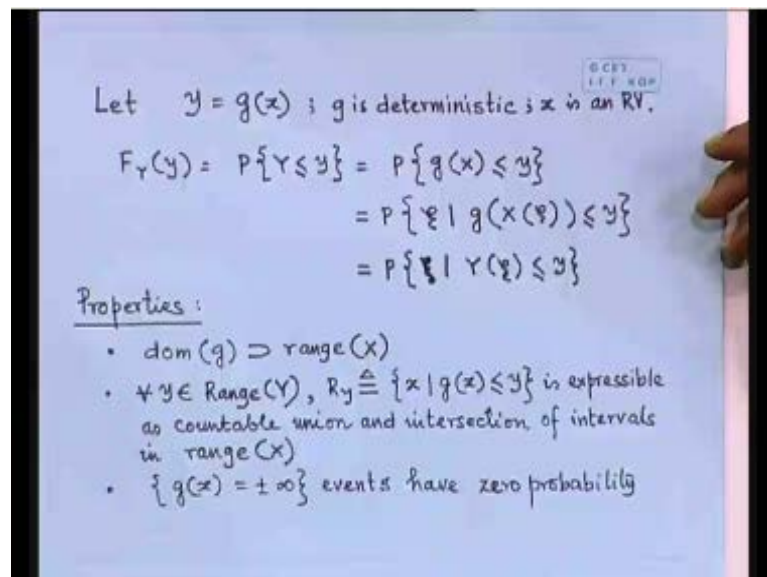 Let y = g(x) ; g is deterministic ; x is an RV.
F_Y(y) = P{Y ≤ y} = P{g(x) ≤ y}
= P{ξ | g(X(ξ)) ≤ y}
= P{ξ | Y(ξ) ≤ y}
Properties :
• dom(g) ⊃ range(X)
• ∀ y ∈ Range(Y), Ry ≜ {x | g(x) ≤ y} is expressible
as countable union and intersection of intervals
in range(X)
• {g(x) = ± ∞} events have zero probability